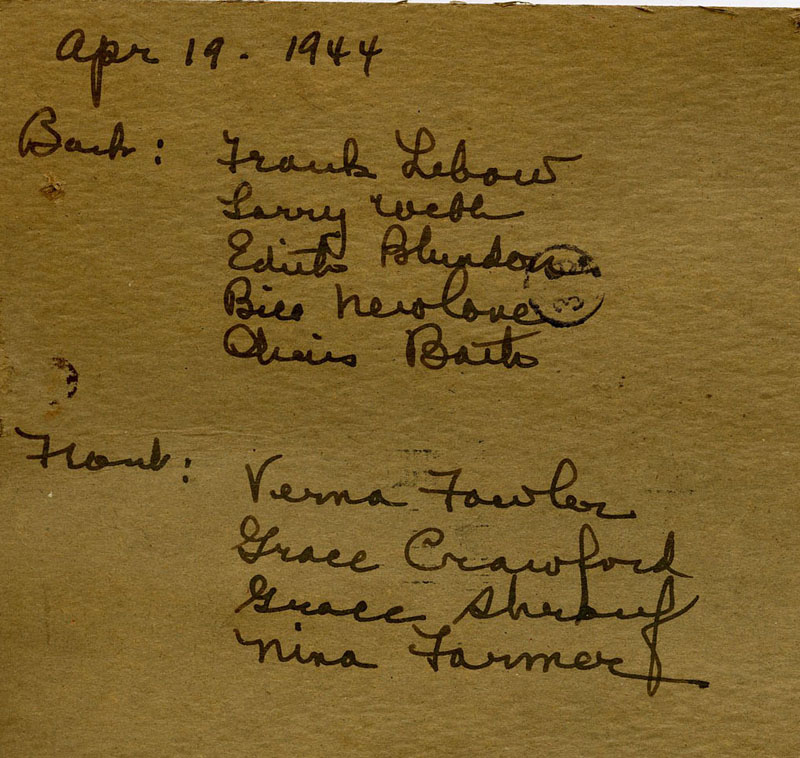 Apr 19 - 1944
Back: Frank Lebow
Larry Webb
Edith Blundon
Bill Newlove
Chris Barto
Front: Verna Fowler
Grace Crawford
Grace Shrouf
Nina Farmer